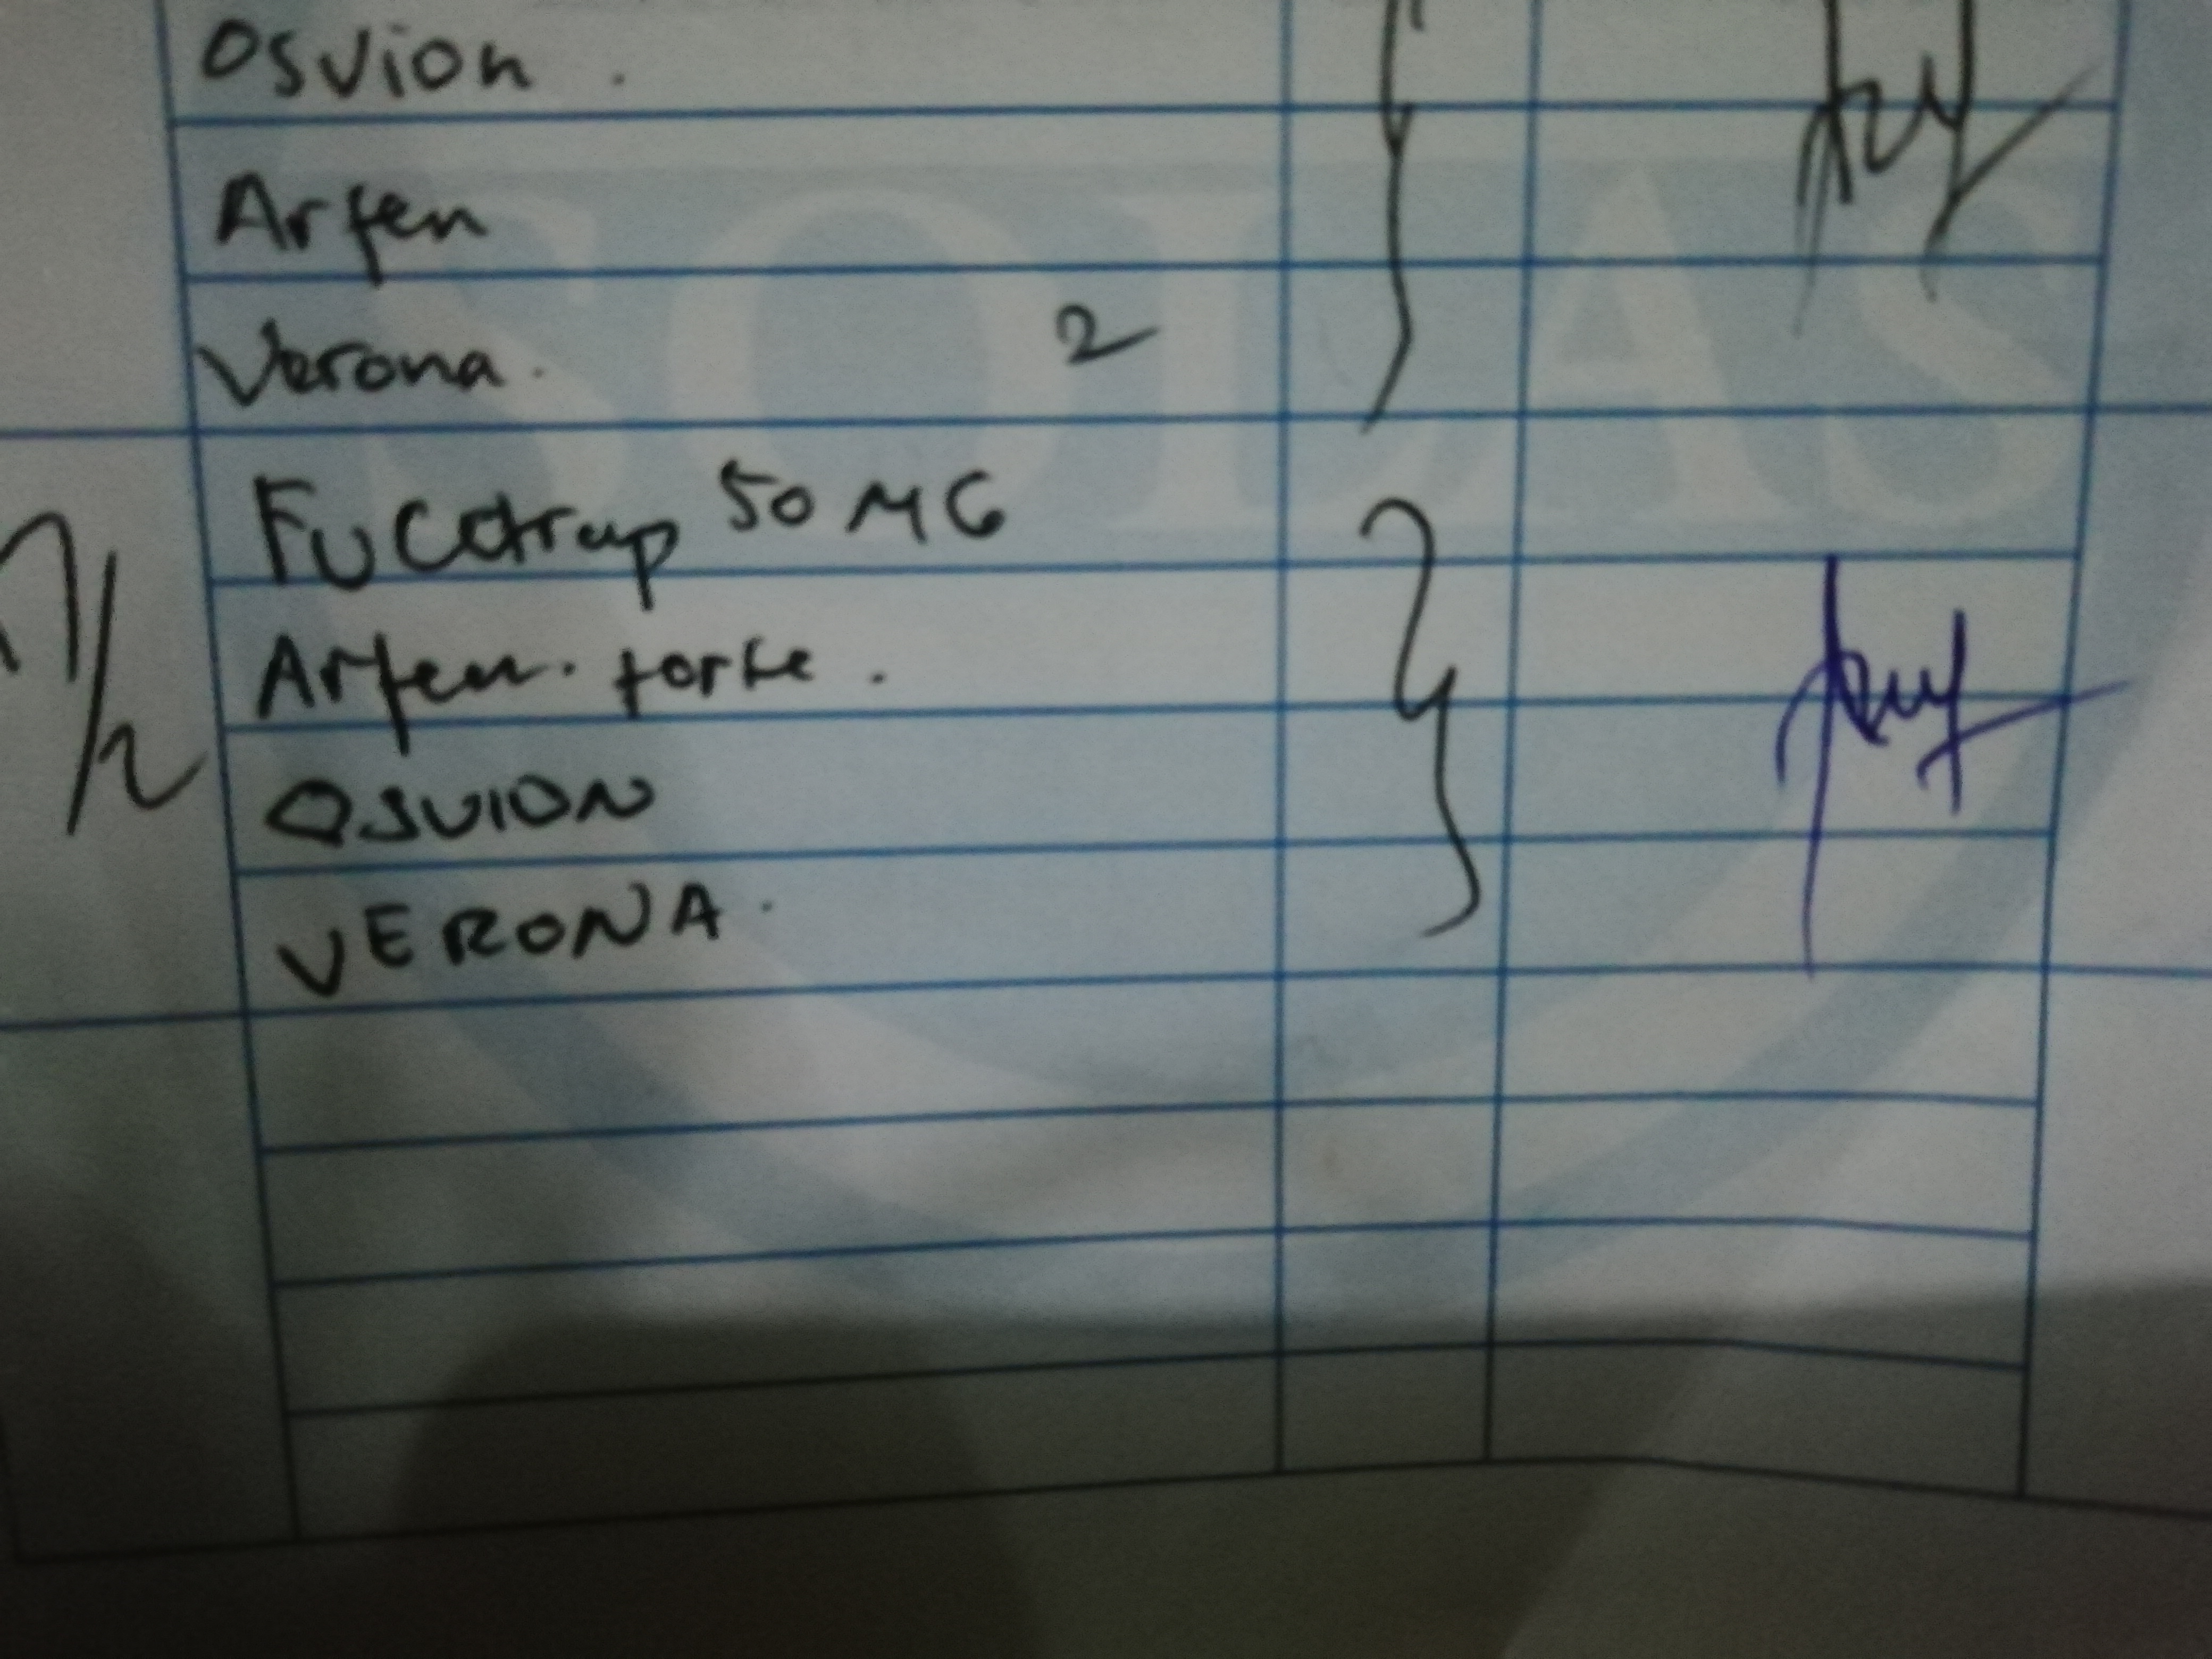 Osvion .
Arfen
Verona . 2
Fucotrap 50 MG
Arfen . forte .
OSVION
VERONA .
SOLAS